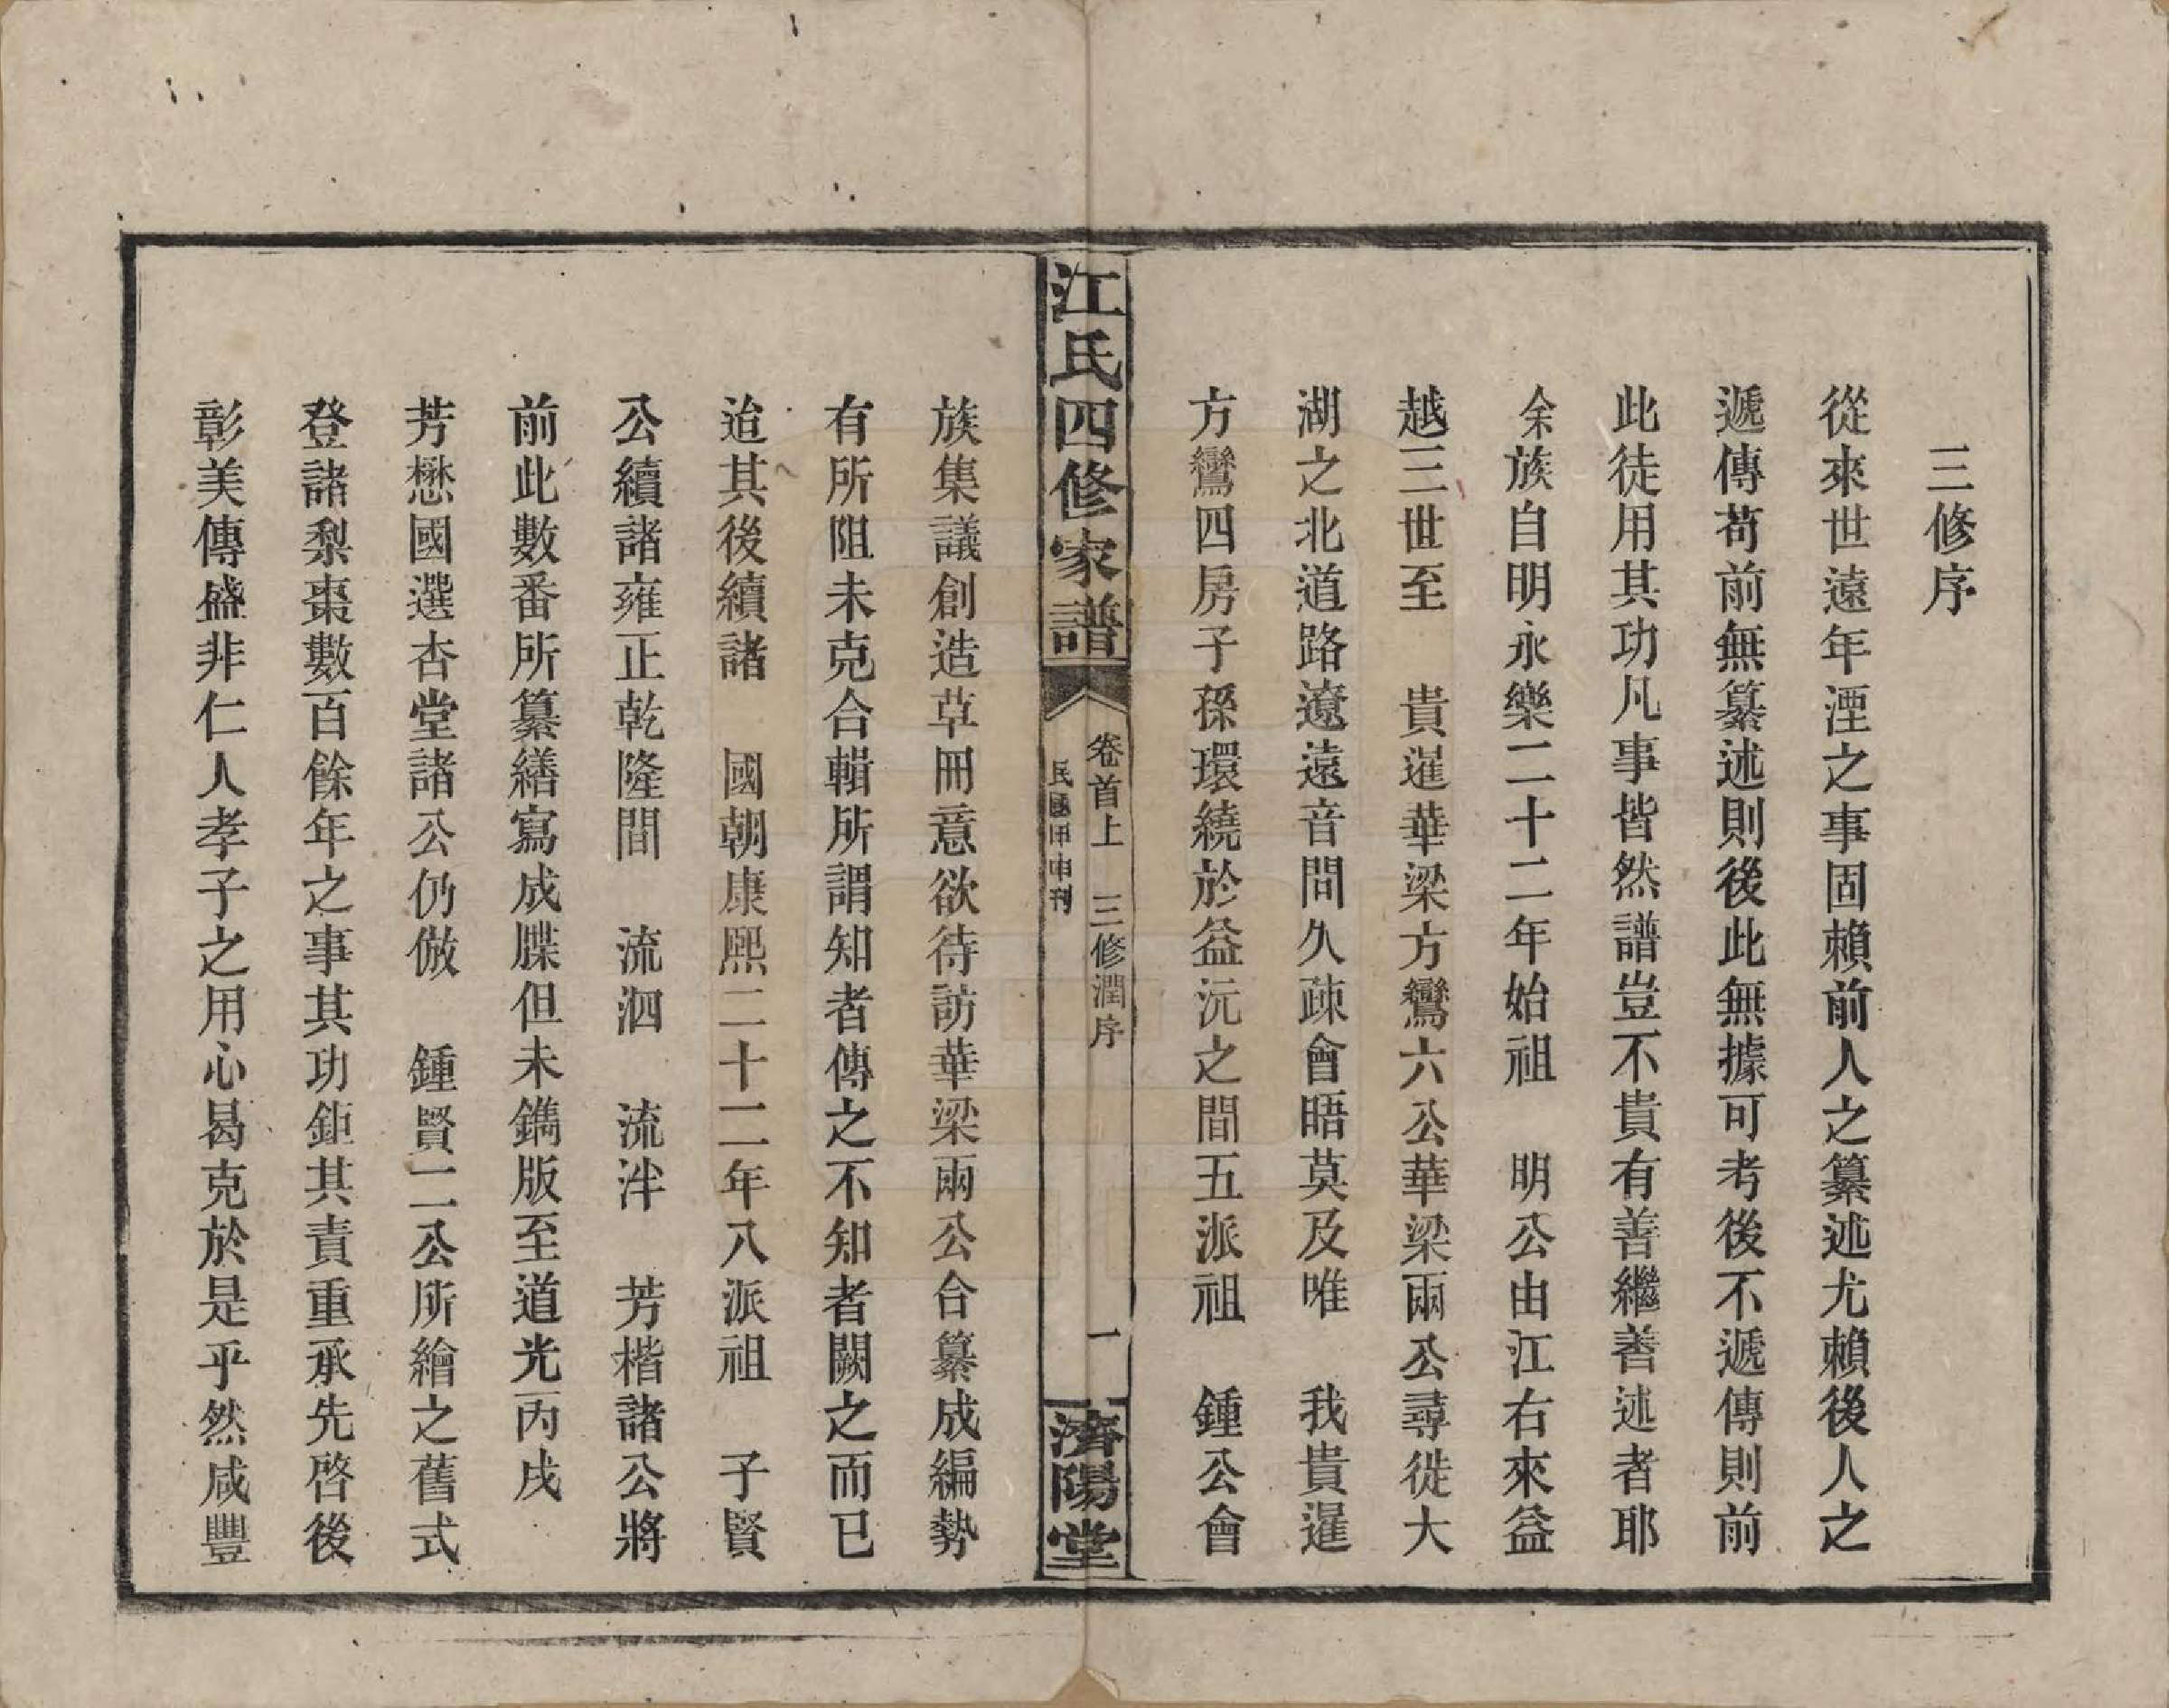 三修序
從來世遠年湮之事固賴前人之纂述尤賴後人之
遞傳苟前無纂述則後此無據可考後不遞傳則前
此徒用其功凡事皆然譜豈不貴有善繼善述者耶
余族自明永樂二十二年始祖　明公由江右來益
越三世至　貴暹華梁方鸞六公華梁兩公尋徙大
湖之北道路遼遠音問久疎會晤莫及唯　我貴暹
方鸞四房子孫環繞於益沅之間五派祖　鍾公會
江氏四修家譜
卷首上　三修潤序
民國甲申刊
一
濟陽堂
族集議創造草冊意欲待訪華梁兩公合纂成編勢
有所阻未克合輯所謂知者傳之不知者闕之而已
迨其後續諸　國朝康熙二十二年八派祖　子賢
公續諸雍正乾隆間　流泗　流泮　芳楷諸公將
前此數番所纂繕寫成牒但未鐫版至道光丙戌
芳懋國選杏堂諸公仍倣　鍾賢二公所繪之舊式
登諸梨棗數百餘年之事其功鉅其責重承先啓後
彰美傳盛非仁人孝子之用心曷克於是乎然咸豐